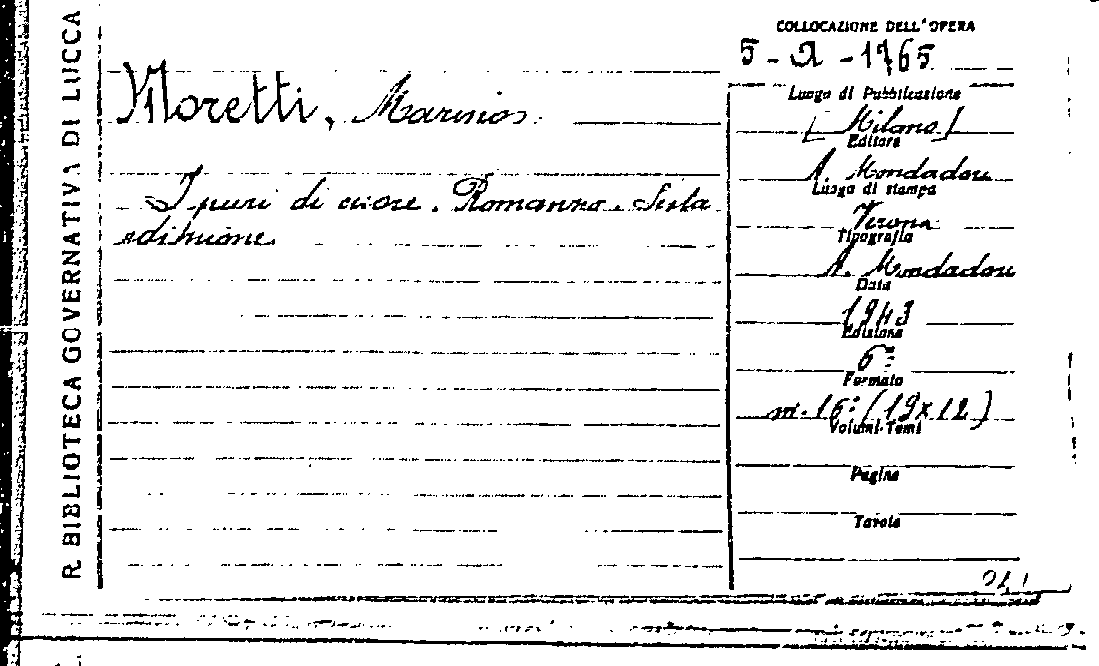 R. BIBLIOTECA GOVERNATIVA DI LUCCA
Moretti, Marino.
I puri di cuore. Romanzo. Sesta
edizione.
COLLOCAZIONE DELL'OPERA
Luogo di Pubblicazione
[Milano]
Editore
A. Mondadori
Luogo di stampa
Verona
Tipografia
A. Mondadori
Data
1943
Edizione
6ª
Formato
in-16° (19x12)
Volumi-Tomi
Pagine
Tavole